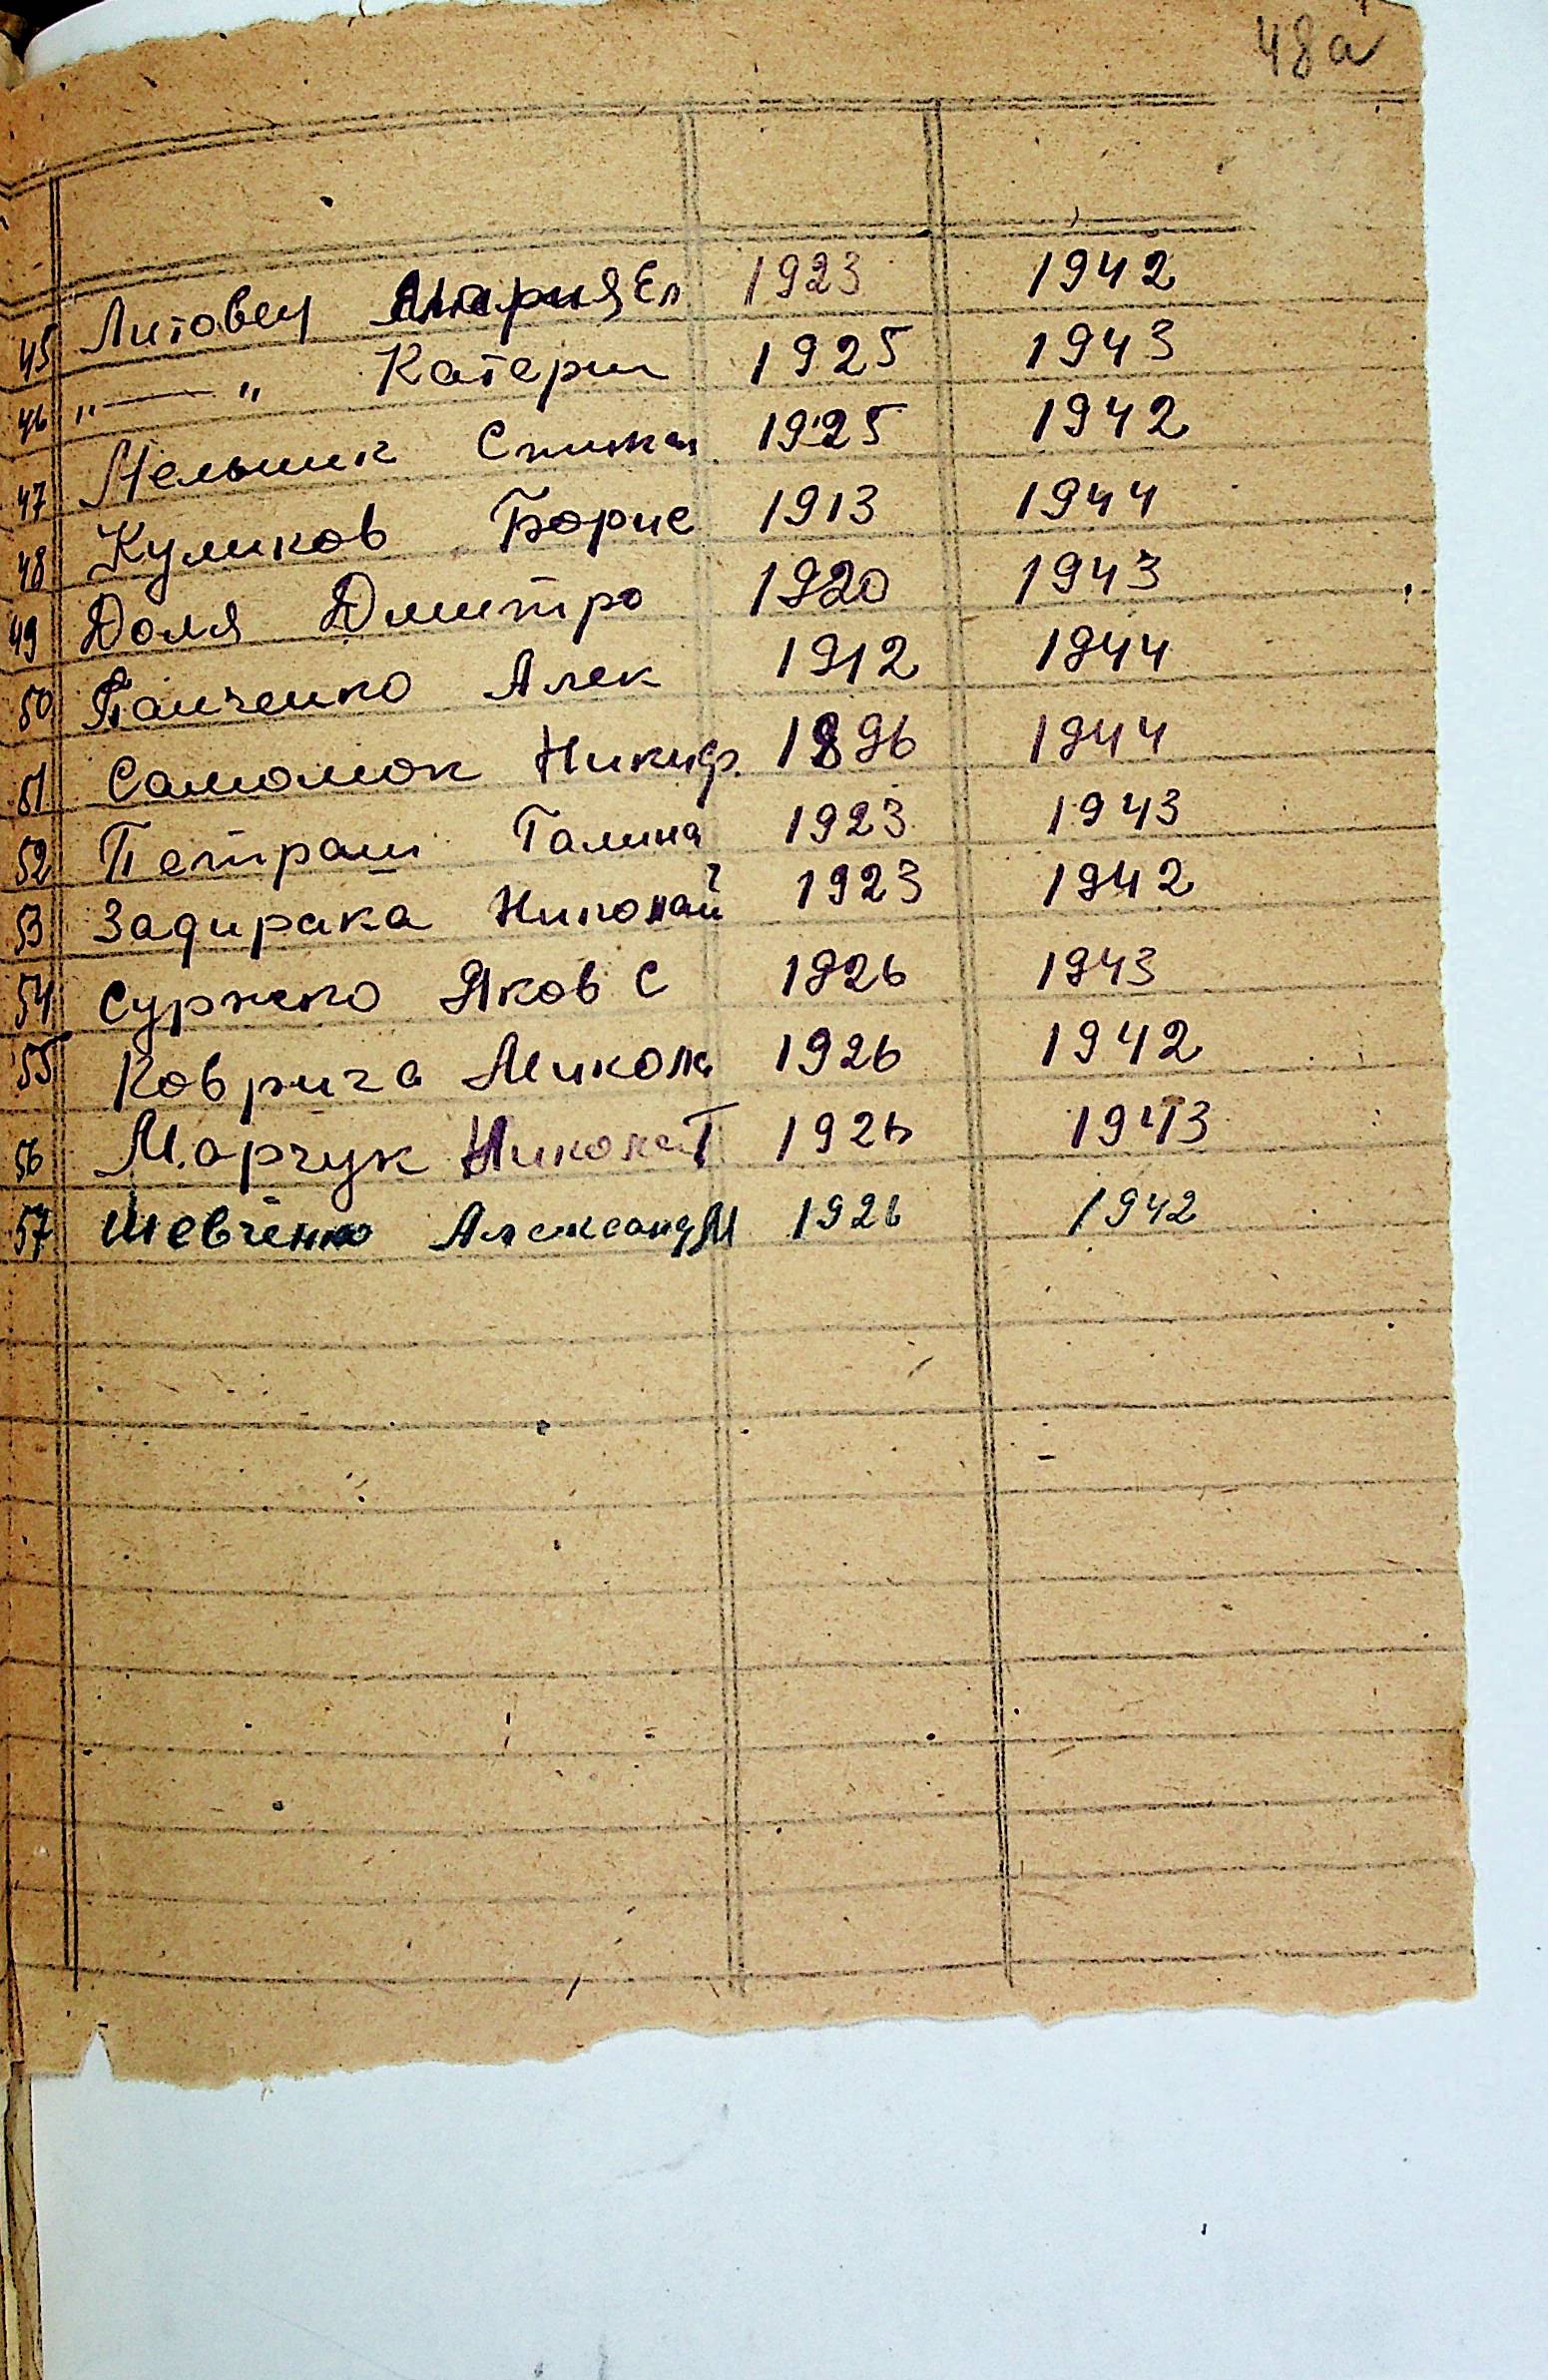 48а
45 Литовец Мария Ел 1923 1942
46 "—" Катери 1925 1943
47 Мельник 1925 1942
48 Куликов Борис 1913 1944
49 Доля Дмитро 1920 1943
50 Панченко Алек 1912 1944
51 Никиф. 1896 1944
52 Петраш Галина 1923 1943
53 Задирака Николай 1923 1942
54 Яков С 1926 1943
55 Микола 1926 1942
56 Марчук Никола Т 1926 1943
57 Шевченко Александ М 1926 1942